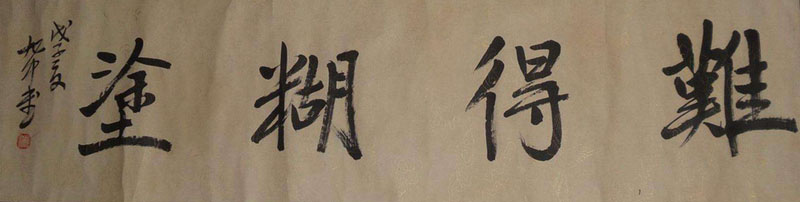 難得糊塗
戊子夏